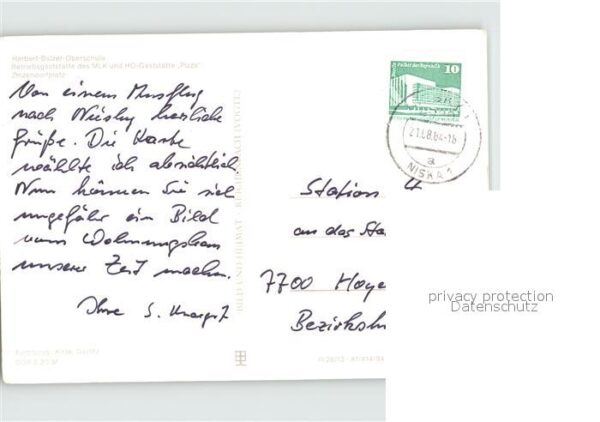 Herbert-Balzer-Oberschule
Betriebsgaststätte des MLK und HO-Gaststätte „Plaza“
Zinzendorfplatz
Von einem Ausflug
nach Niesky herzliche
Grüße. Die Karte
wählte ich absichtlich.
Nun können Sie sich
ungefähr ein Bild
vom Wohnungsbau
unserer Zeit machen.
Ihre S.
BILD UND HEIMAT
10
Palast der Republik
21.08.84-16
a
NISKA 1
Station 4
an das Sta
7700 Hoye
Bezirks
privacy protection
Datenschutz